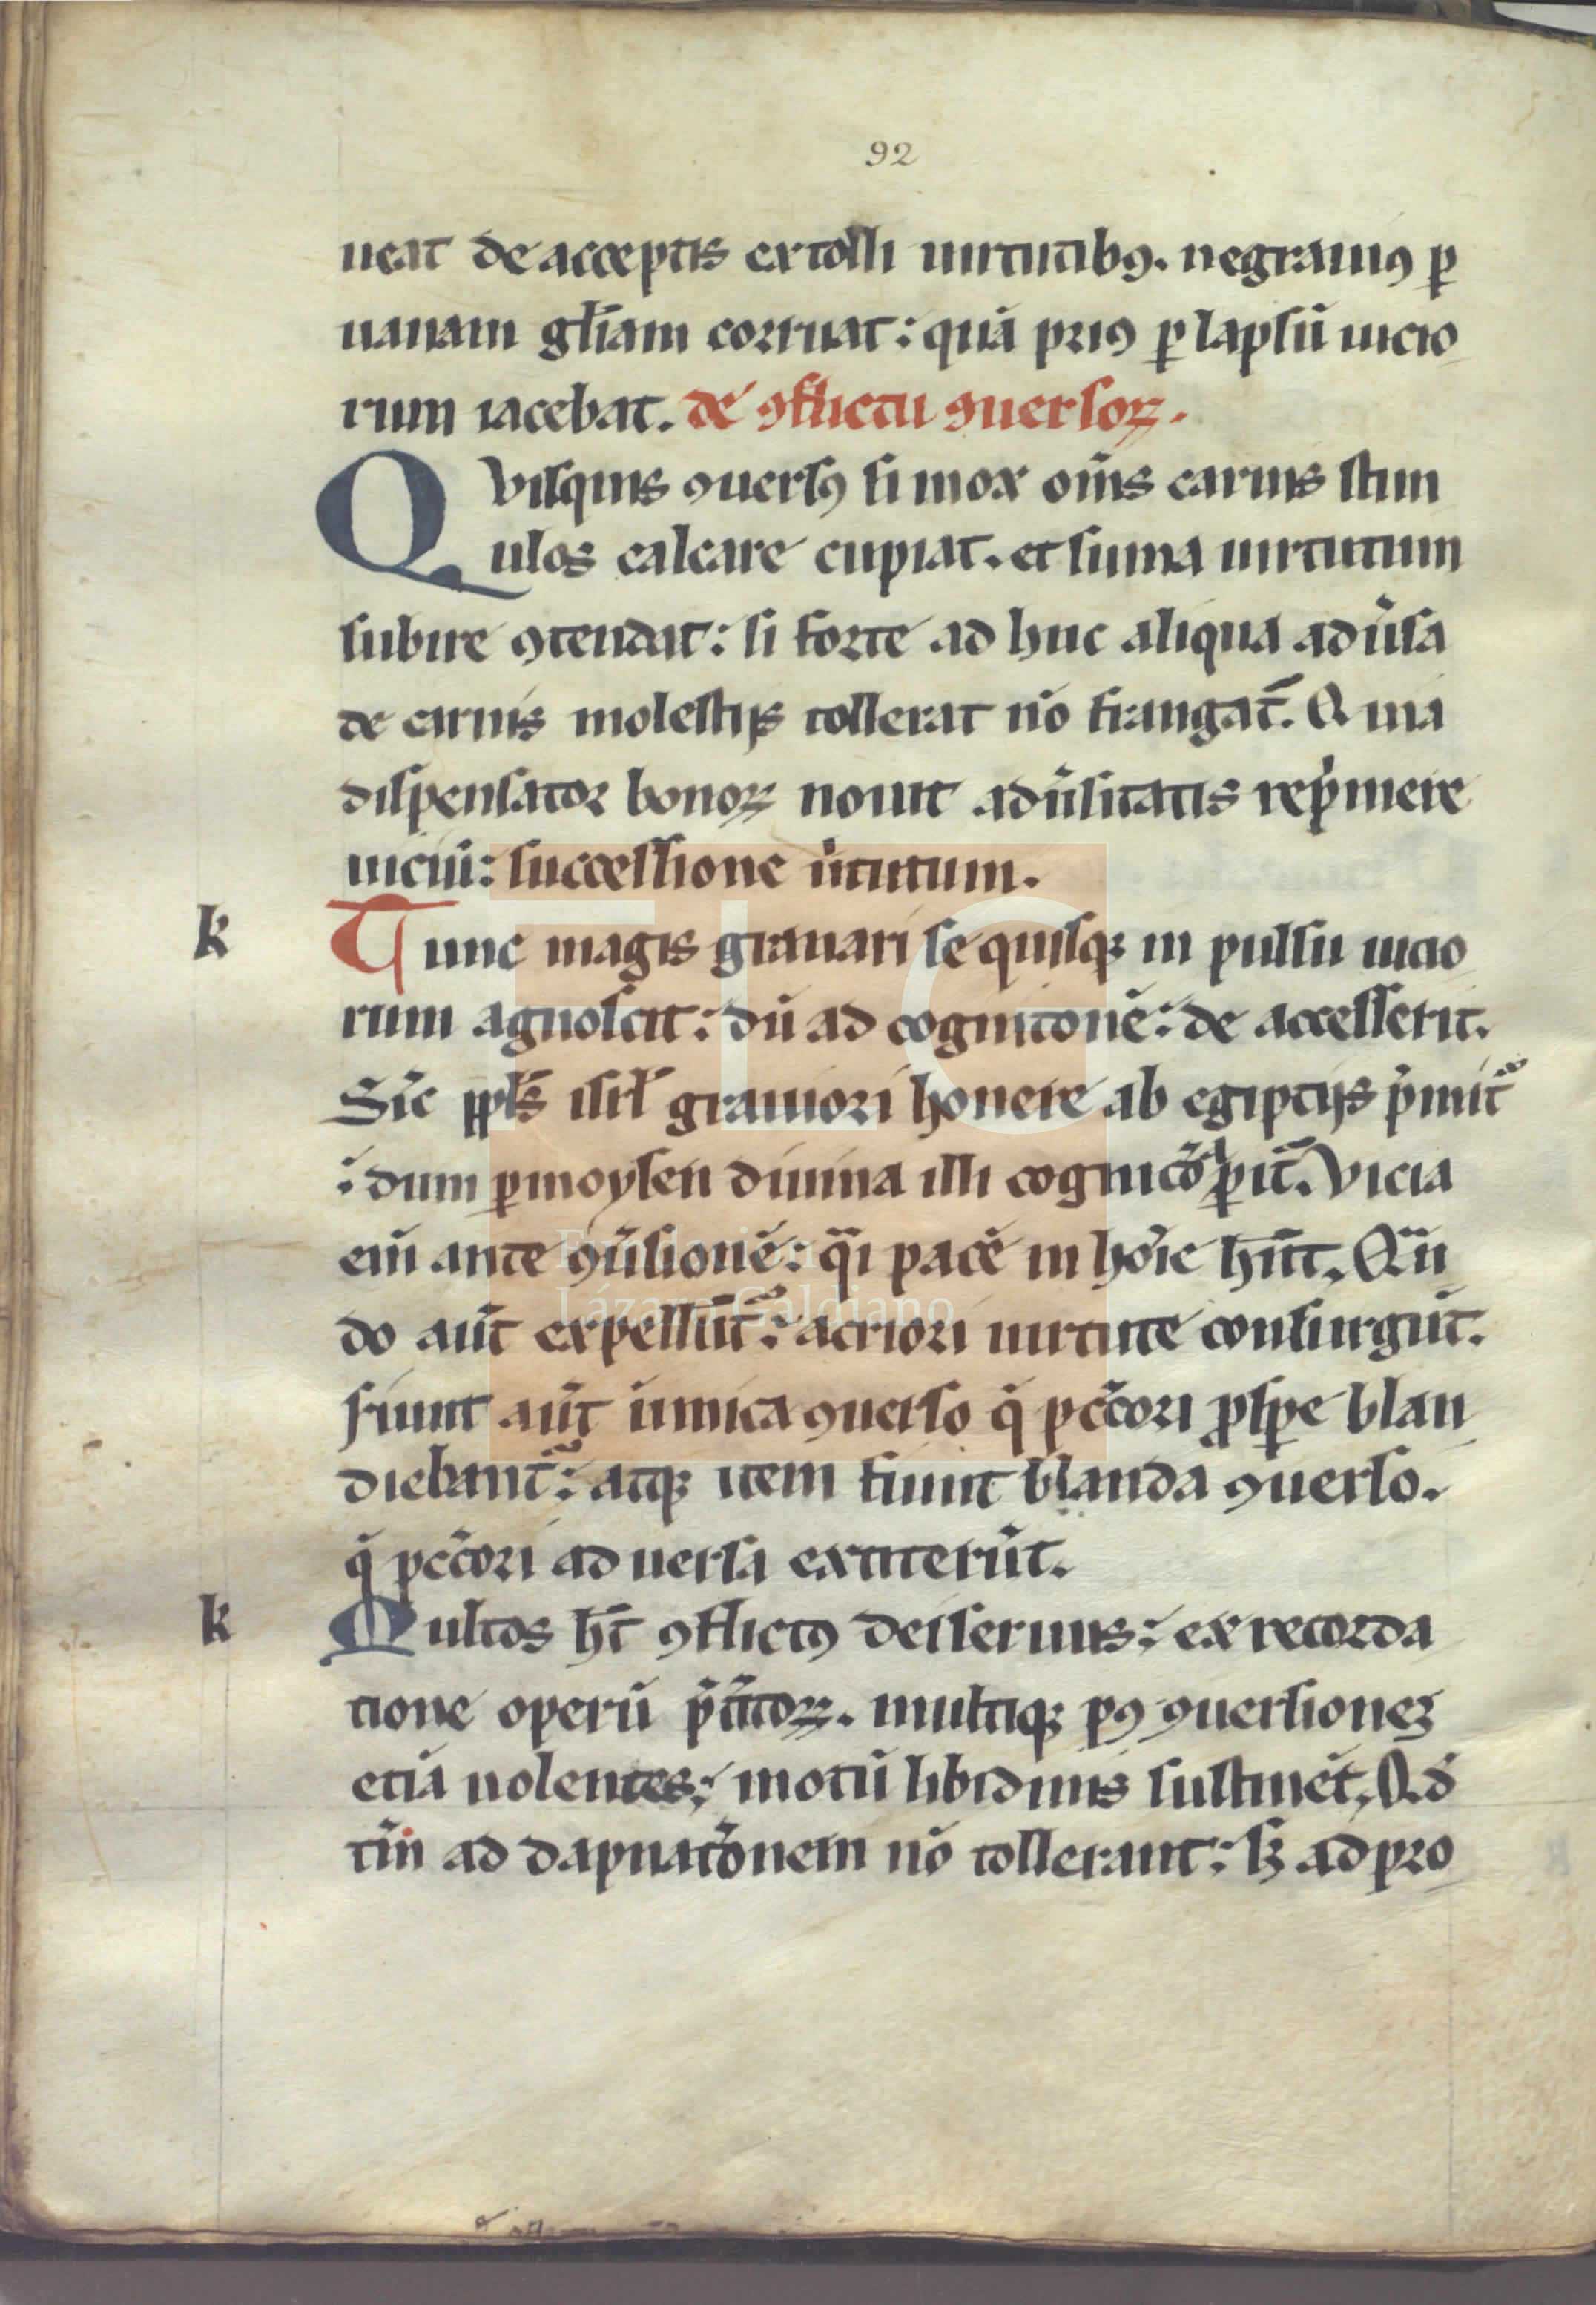 92
ueat de acceptis extolli uirtutibꝯ. negrauiꝯ ꝑ
uanam gl̄iam corruat: quā priꝯ ꝑ lapsū uicio
rum iacebat. de ꝯflictu ꝯuersoꝝ.
Qvisquis ꝯuersꝯ si mox om̄s carnis stim
ulos calcare cupiat. et suma uirtutum
subire ꝯtendat: si forte ad huc aliqua adu̾sa
de carnis molestijs tollerat nō frangat᷑. Quia
dispensator bonoꝝ nouit adu̾sitatis rep̍mere
uiciū: successione u̾tutum.
k Tunc magis grauari se quisqꝫ in pulsu uicio
rum agnoscit: dū ad cognitonē: de accesserit.
Sic̄ ppl̄s isrl̄ grauiori honere ab egiptijs p̍mit᷑
: dum ꝑmoysen diuina illi cognitō ꝑit᷑. Vicia
eni̅ ante ꝯu̾sionē: q̄i pacē in ho̅ie hn̄t. Qn̄
do aut̄ expellūt᷑: acriori uirtute consurgūt.
fiunt aut̄ inimica ꝯuerso q̄ pcc̄ori ꝓsꝑe blan
diebant᷑: atqꝫ item fiunt blanda ꝯuerso.
q̄ pcc̄ori ad uersa extiterūt.
k Multos ht̄ ꝯflictꝯ dei seruus: ex recorda
tione operū p̄t̾itoꝝ. multiqꝫ pꝯ ꝯuersioneꝫ
etiā nolentes: motū libidinis sustinēt. Qd̄
tn̄ ad dapnatōnem nō tollerant: sꝫ ad pro
Fundación
Lázaro Galdiano